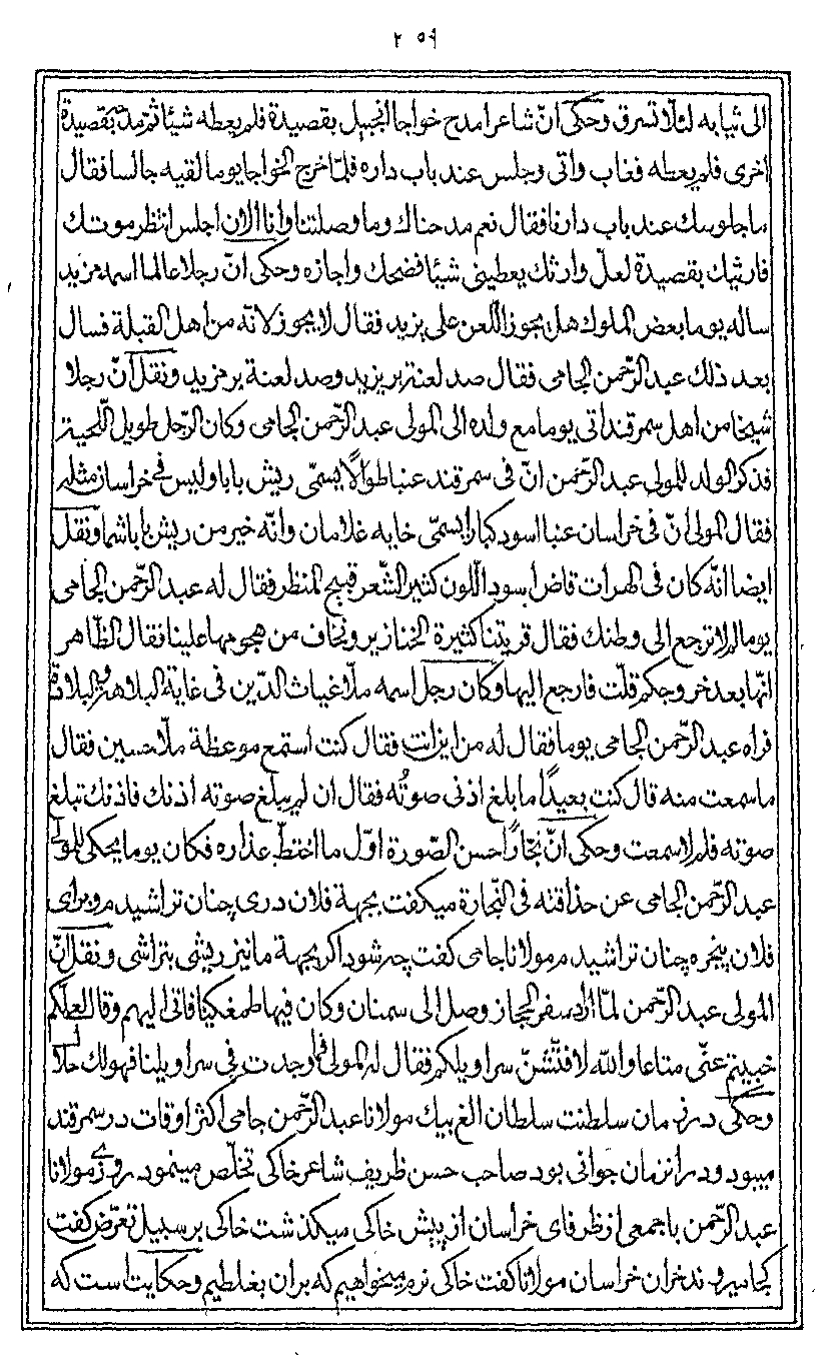 ٢٥٩
الى ثيابه لئلّا تسرق وحكى انّ شاعرا مدح خواجا الجبيل بقصيدة فلم يعطه شيئا ثم مدحه بقصيدة
اخرى فلم يعطه فغاب واتى وجلس عند باب داره فلمّا خرج الخواجا يوما لقيه جالسا فقال
ما جلوسك عند باب دارنا فقال نعم مدحناك وما وصلتنا وانا الان اجلس انتظر موتك
فارثيك بقصيدة لعلّ وارثك يعطيني شيئا فضحك واجازه وحكى انّ رجلا عالما اسمه مزيد
ساله يوما بعض الملوك هل يجوز اللعن على يزيد فقال لا يجوز لانّه من اهل القبلة فسال
بعد ذلك عبد الرّحمن الجامى فقال صد لعنة بر يزيد وصد لعنة بر مزيد ونقل انّ رجلا
شيخا من اهل سمرقند اتى يوما مع ولده الى المولى عبد الرّحمن الجامى وكان الرّجل طويل اللّحية
فذكر الولد للمولى عبد الرّحمن انّ فى سمرقند عنبا طوالًا يسمّى ريش بابا وليس فى خراسان مثله
فقال المولى انّ فى خراسان عنبا اسود كبارا يسمّى خايه غلامان وانّه خير من ريش بابا شما ونقل
ايضا انّه كان فى الهرات قاض اسود اللّون كثير الشّعر قبيح المنظر فقال له عبد الرّحمن الجامى
يوما لم لا ترجع الى وطنك فقال قريتنا كثيرة الخنازير ونخاف من هجومها علينا فقال الظّاهر
انّها بعد خروجكم قلّت فارجع اليها وكان رجل اسمه ملّا غياث الدّين فى غاية البلاهة والبلادة
فراه عبد الرّحمن الجامى يوما فقال له من اين انت فقال كنت استمع موعظة ملّا حسين فقال
ما سمعت منه قال كنت بعيدًا ما بلغ اذنى صوتُه فقال ان لم يبلغ صوته اذنك فاذنك تبلغ
صوته فلم لا سمعت وحكى انّ نجّارًا حسن الصّورة اوّل ما اختطّ عذاره فكان يوما يحكى للمولى
عبد الرّحمن الجامى عن حذاقته فى النّجارة ميكفت بجهة فلان درى چنان تراشيدم وبراى
فلان پنجره چنان تراشيدم مولانا جامى كفت چه شود اكر بجهة ما نيز ريشى بتراشى ونقل انّ
المولى عبد الرّحمن لمّا اراد سفر الحجاز وصل الى سمنان وكان فيها طمغكيا فاتى اليهم وقال لعلّكم
خبيتم عنّى متاعا والله لافتّشنّ سراويلكم فقال له المولى فما وجدت فى سراويلنا فهو لك حلا
وحكى در زمان سلطنت سلطان الغ بيك مولانا عبد الرّحمن جامى اكثر اوقات در سمرقند
ميبود ودر انزمان جوانى بود صاحب حسن ظريف شاعر خاكى تخلّص مينمود روزى مولانا
عبد الرّحمن با جمعى از ظرفاى خراسان از پيش خاكى ميكذشت خاكى بر سبيل تعرّض كفت
كجا ميروند خران خراسان مولانا كفت خاكى نرم ميخواهيم كه بران بغلطيم وحكايت است كه